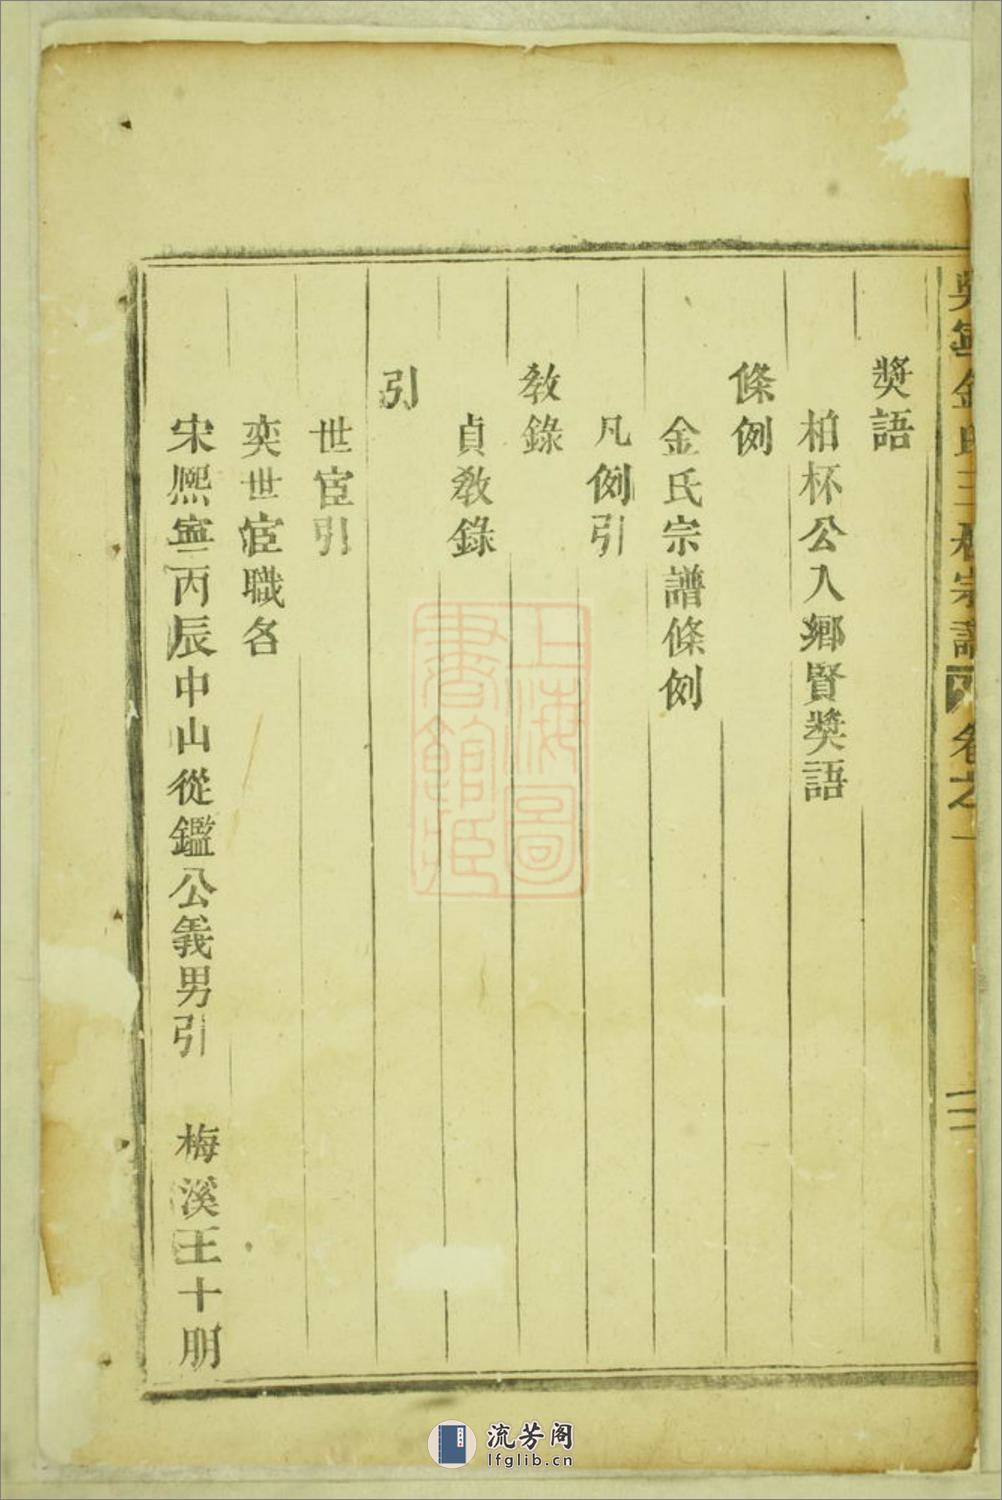 獎語
柏杯公入鄉賢獎語
條例
金氏宗譜條例
凡例引
敎錄
貞敎錄
引
世宦引
奕世宦職名
宋熙寧丙辰中山從鑑公義男引 梅溪王十朋
卷之一
二
上海圖
書館藏
流芳阁
lfglib.cn